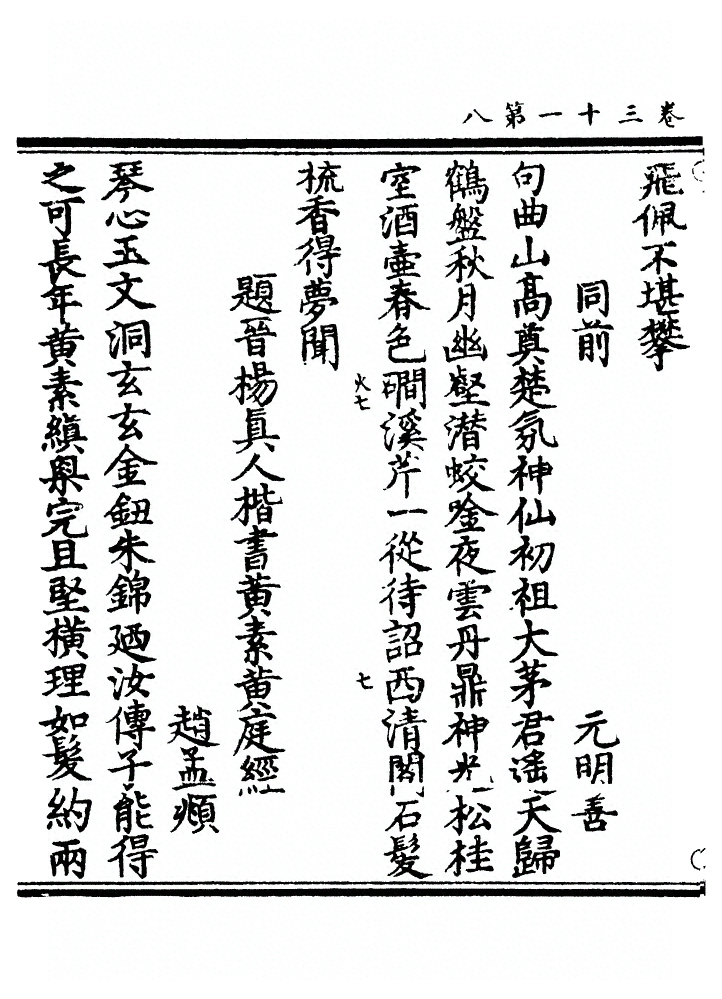 卷三十一第八
飛佩不堪攀
同前　元明善
句曲山髙奠楚氛神仙初祖大茅君遥天歸
鶴盤秋月幽壑潜蛟唫夜雲丹鼎神光松桂
室酒壷春色磵溪芹一從待詔西清閣石髮
火七
七
梳香得夢聞
題晉楊真人楷書黄素黄庭經
趙孟頫
琴心玉文洞玄玄金鈕朱錦廼汝傳子能得
之可長年黄素縝𦂶完且堅橫理如髮約兩